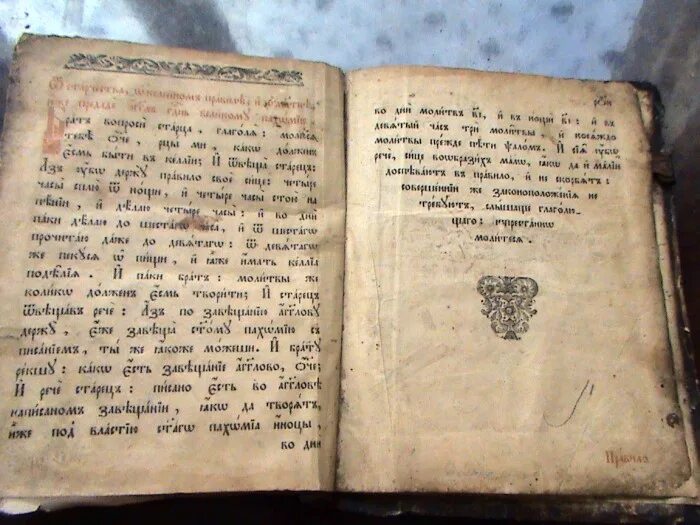 Ѿ старчества, ѡ келейномъ правилѣ, и҆ ѡ молитвѣ,
ю҆же предаде а҆г҃гл҃ъ гдⷭ҇ень великому пахѡ́мїю.
Братъ вопросѝ ста́рца, глаго́лѧ: молю́сѧ
тебѣ̀ ѻ҆́ч҃е, рцы̀ мѝ, ка́кѡ до́лженъ
є҆́смь бы́ти въ ке́ллїи; И҆ ѿвѣща̀ ста́рецъ:
А҆́зъ ᲂу҆́бѡ держꙋ̀ пра́вило своѐ си́це: четы́ре
часы̀ сплю̀ ѿ но́щи, и҆ четы́ре часы̀ стою̀ на
пѣ́нїи, и҆ дѣ́лаю четы́ре часы̀: и҆ во днѝ
па́ки дѣ́лаю до шеста́гѡ часа̀, и҆ ѿ шеста́гѡ
прочита́ю да́же до девѧ́тагѡ: ѿ девѧ́тагѡ
же пекꙋ́сѧ ѡ҆ пи́щи, и҆ ꙗ҆́же и҆́мать ке́ллїа
подѣ́лїѧ. И҆ па́ки бра́тъ: моли́твы же
коли́кѡ до́лженъ є҆́смь твори́ти; И҆ ста́рецъ
ѿвѣща́въ речѐ: А҆́зъ по завѣща́нїю а҆́гг҃лову
держꙋ̀, є҆́же завѣща̀ ст҃о́мꙋ пахѡ́мїю съ
писа́нїемъ, ты́ же ꙗ҆́коже мо́жеши. И҆ бра́тꙋ
ре́кшꙋ: ка́кѡ є҆́сть завѣща́нїе а҆́гг҃лово, ѻ҆́ч҃е;
И҆ речѐ ста́рецъ: пи́сано є҆́сть во а҆́гг҃ловѣ
напи́саномъ завѣща́нїи, ꙗ҆́кѡ да творѧ́тъ,
и҆̀же под̾ вла́стїю ст҃а́гѡ пахѡ́мїа и҆́ноцы,
во днѝ
во днѝ моли́твъ в҃і, и҆ въ нощѝ в҃і: и҆ въ
девѧ́тый ча́съ трѝ моли́твы, и҆ коегѡ́ждо
моли́твы пре́жде пѣ́ти ѱало́мъ. И҆ сїѧ̑ ᲂу҆́бѡ
речѐ, си́це воѡбрази́хъ ма́лѡ, ꙗ҆́кѡ да и҆ ма́лїи
доспѣва́ютъ въ пра́вило, и҆ не скорбѧ́тъ:
соверше́ннїи же законоположе́нїѧ не
тре́бꙋютъ, слы́шаще глаго́лю-
щаго: непреста́ннѡ
моли́тесѧ.
Пра́вила